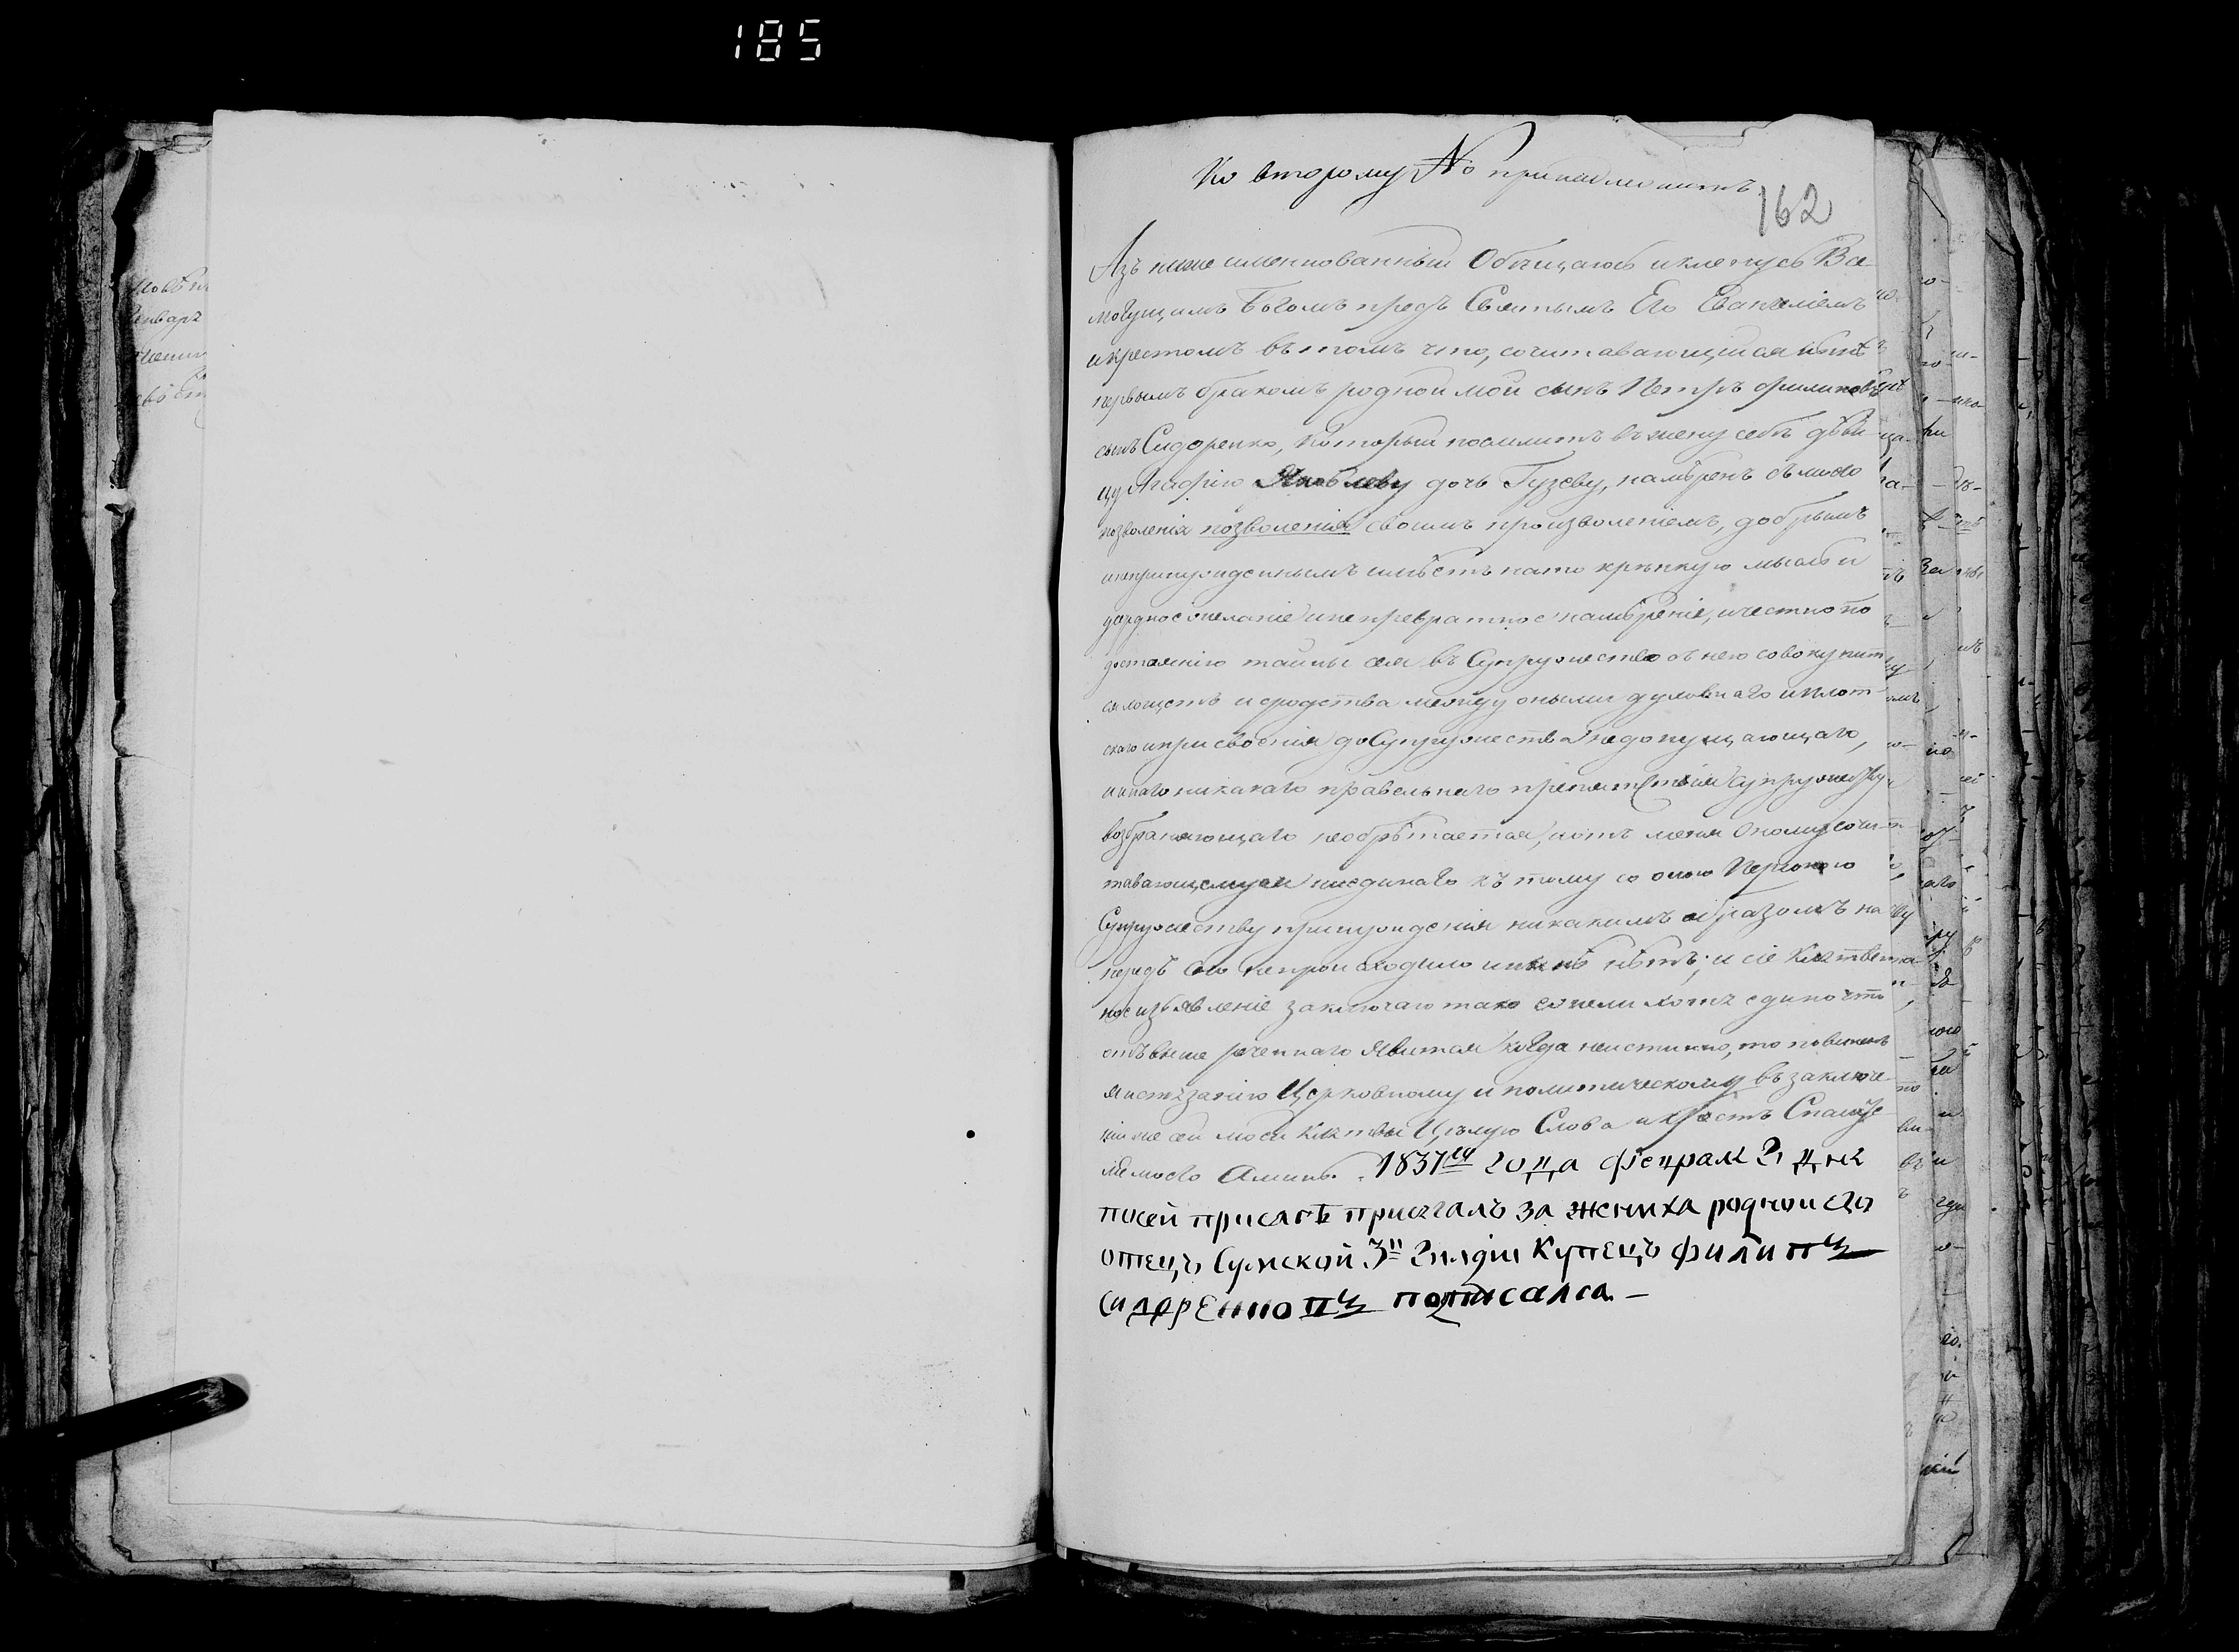 185
Ко второму № принадлежитъ
162
Азъ ниже именнованный Обѣщаюсь и кленусь Все
могущимъ Богомъ предъ Святымъ Его Евангелiемъ
и крестомъ въ томъ что, сочитавающийся нынѣ
первымъ бракомъ родной мой сынъ Петръ Филиповъ
сынъ Сидоренко, который поемлитъ въ жену себѣ дѣви
цу Агафiю Яковлеву дочь Гузеву, намѣренъ съ моего
позволенiя позволенiя своимъ произволенiемъ, добрымъ
и непринужденнымъ имѣетъ на то крѣпкую мысль и
желанiе и непревратное намѣренiе, и честно по
достоянiю тайны сея въ Супружество съ нею совокупит
ся и сродства между оными духовнаго и плот
скаго и присвоенiя до Супружества недопущающаго,
и инаго никакаго правельнаго препятствiя Супружеству
возбраняющаго необрѣтается, и отъ меня Оному сочи
тавающемуся ниединаго къ тому со оною Перваго
Супружеству принужденiя никакимъ образомъ на
предъ сего непроисходило и нынѣ нѣтъ; и сiе Клятвен
ное изъявленiе заключаю тако ежели хотя едино что
отъ выше реченнаго явится когда неистинно, то повиненъ
я истязанiю Церковному и политическому въ заключе
нiи же сей моей клятвы Цѣлую Слова и крестъ Спасите
ля моего Аминь. 1837го года февраля 2, дня
по сей присягѣ присягалъ за жениха родной его
отецъ Сумской 3й гилдiи Купецъ филипъ
сидоренко подписался. —